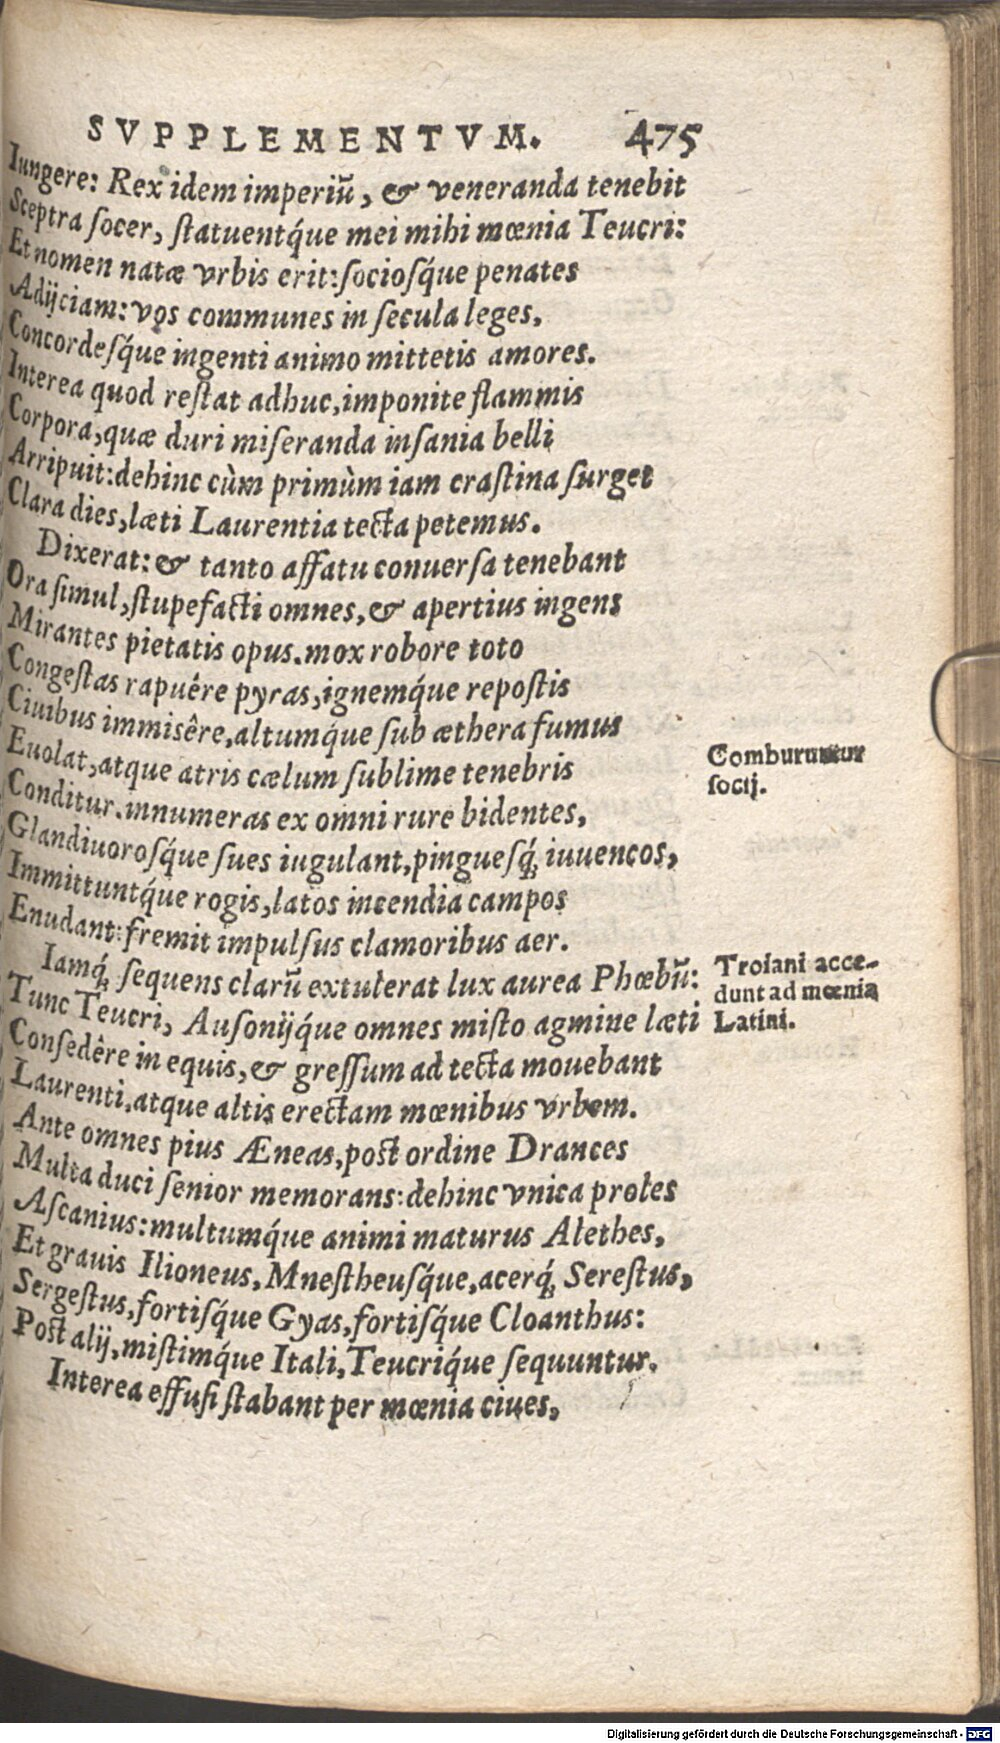 SVPPLEMENTVM. 475
Iungere: Rex idem imperiũ, & veneranda tenebit
Sceptra ſocer, ſtatuentq́ue mei mihi mœnia Teucri:
Et nomen natæ vrbis erit: ſocioſq́ue penates
Adijciam: vos communes in ſecula leges,
Concordeſq́ue ingenti animo mittetis amores.
Interea quod reſtat adhuc, imponite flammis
Corpora, quæ duri miſeranda inſania belli
Arripuit: dehinc cùm primùm iam craſtina ſurget
Clara dies, læti Laurentia tecta petemus.
Dixerat: & tanto affatu conuerſa tenebant
Ora ſimul, ſtupefacti omnes, & apertius ingens
Mirantes pietatis opus. mox robore toto
Congeſtas rapuêre pyras, ignemq́ue repoſtis
Ciuibus immisêre, altumq́ue ſub æthera fumus
Euolat, atque atris cælum ſublime tenebris
Comburuntur
ſocij.
Conditur. innumeras ex omni rure bidentes,
Glandiuoroſq́ue ſues iugulant, pingueſq́; iuuencos,
Immittuntq́ue rogis, latos incendia campos
Enudant: fremit impulſus clamoribus aer.
Iamq́; ſequens clarũ extulerat lux aurea Phœbũ:
Troiani acce-
dunt ad mœnia
Latini.
Tunc Teucri, Auſonijq́ue omnes miſto agmine læti
Conſedêre in equis, & greſſum ad tecta mouebant
Laurenti, atque altis erectam mœnibus vrbem.
Ante omnes pius Æneas, poſt ordine Drances
Multa duci ſenior memorans: dehinc vnica proles
Aſcanius: multumq́ue animi maturus Alethes,
Et grauis Ilioneus, Mneſtheuſq́ue, acerq́; Sereſtus,
Sergeſtus, fortiſq́ue Gyas, fortiſq́ue Cloanthus:
Poſt alij, miſtimq́ue Itali, Teucriq́ue ſequuntur.
Interea effuſi ſtabant per mœnia ciues,
Digitalisierung gefördert durch die Deutsche Forschungsgemeinschaft - DFG